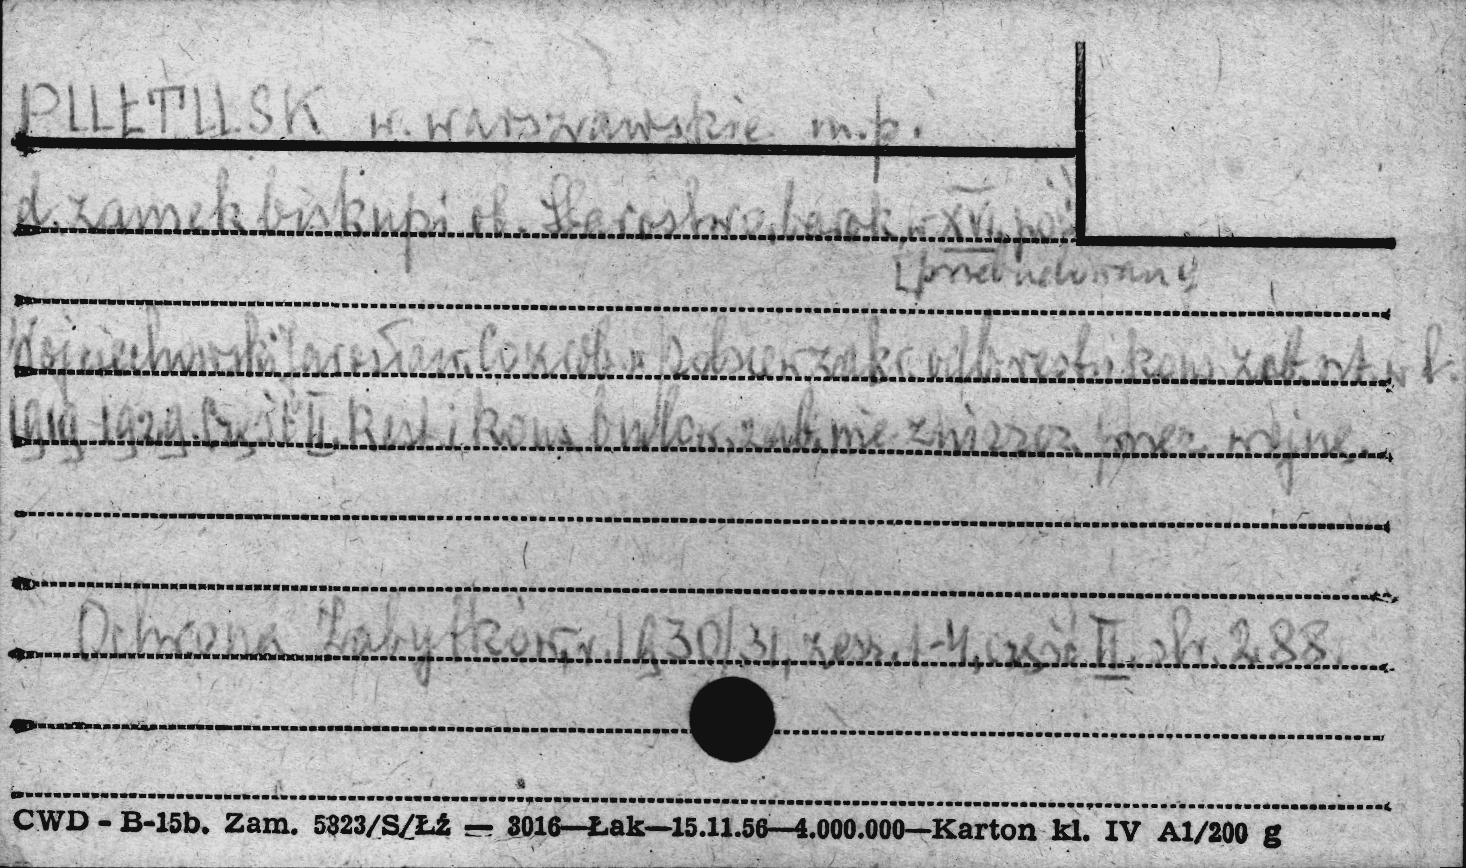 PUŁTUSK w. warszawskie m.p.
d. zamek biskupi ob. Starostwo, barok, w XVI, póź
[przebudowany
Wojciechowski Jarosław. Co zrob. w zakr. odb. rest. i kons. zab. w l.
1919-1929. Część II. Rest. i kons. budow. zab. nie zniszcz. przez wojnę.
Ochrona Zabytków, r. 1930/31, zesz. 1-4, część II, str. 288.
CWD - B-15b. Zam. 5823/S/ŁŹ — 3016—Łak—15.11.56—4.000.000—Karton kl. IV A1/200 g